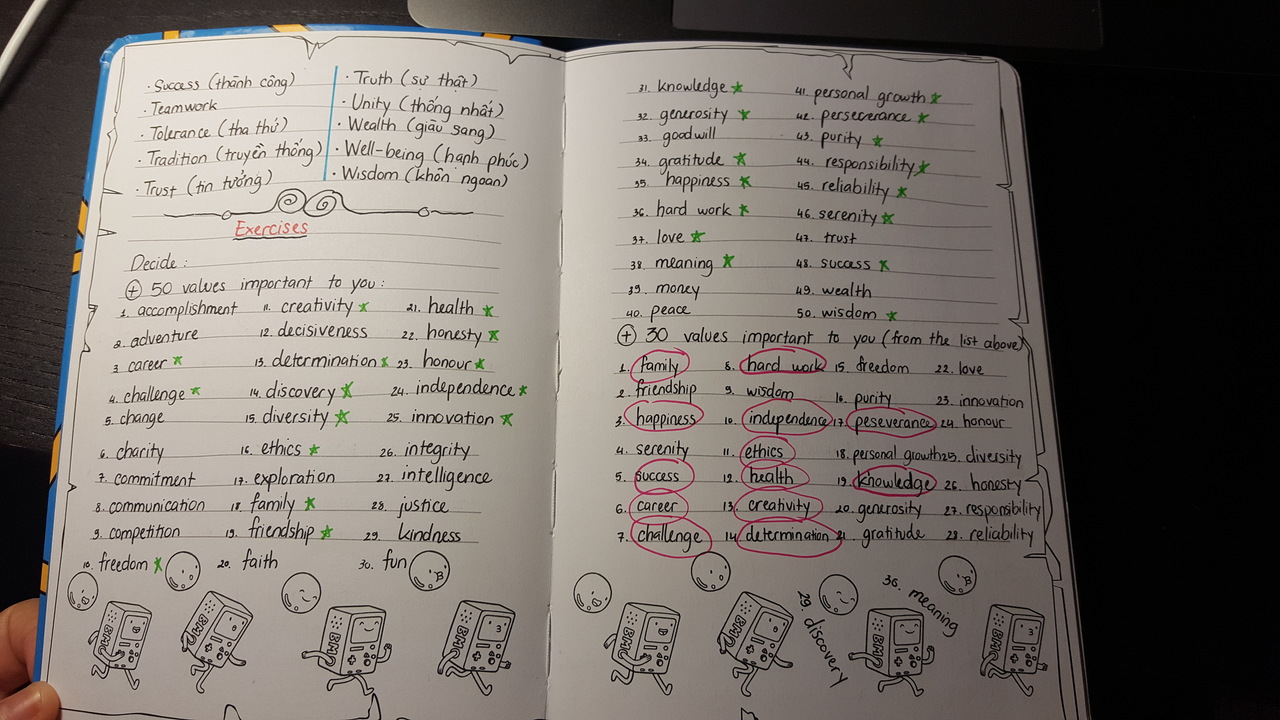 · Success (thành công)
· Teamwork
· Tolerance (tha thứ)
· Tradition (truyền thống)
· Trust (tin tưởng)
· Truth (sự thật)
· Unity (thống nhất)
· Wealth (giàu sang)
· Well-being (hạnh phúc)
· Wisdom (khôn ngoan)
Exercises
Decide:
+ 50 values important to you:
1. accomplishment
2. adventure
3. career
4. challenge
5. change
6. charity
7. commitment
8. communication
9. competition
10. freedom
11. creativity
12. decisiveness
13. determination
14. discovery
15. diversity
16. ethics
17. exploration
18. family
19. friendship
20. faith
21. health
22. honesty
23. honour
24. independence
25. innovation
26. integrity
27. intelligence
28. justice
29. kindness
30. fun
BMO
BMO
BMO
31. knowledge
32. generosity
33. goodwill
34. gratitude
35. happiness
36. hard work
37. love
38. meaning
39. money
40. peace
41. personal growth
42. perseverance
43. purity
44. responsibility
45. reliability
46. serenity
47. trust
48. success
49. wealth
50. wisdom
+ 30 values important to you (from the list above)
1. family
2. friendship
3. happiness
4. serenity
5. success
6. career
7. challenge
8. hard work
9. wisdom
10. independence
11. ethics
12. health
13. creativity
14. determination
15. freedom
16. purity
17. peseverance
18. personal growth
19. knowledge
20. generosity
21. gratitude
22. love
23. innovation
24. honour
25. diversity
26. honesty
27. responsibility
28. reliability
29. discovery
30. meaning
BMO
BMO
BMO